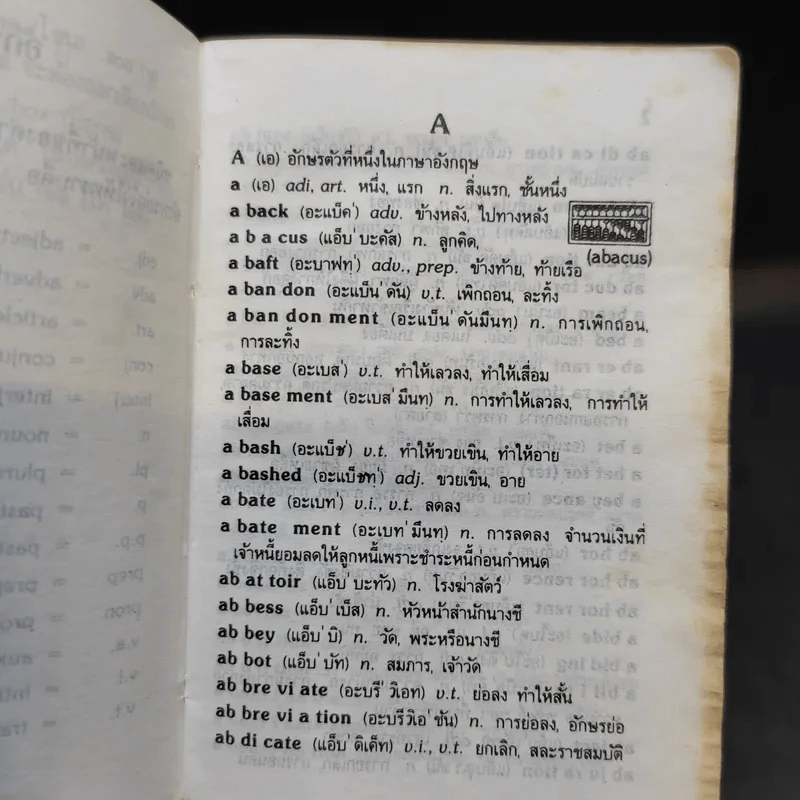 A
A (เอ) อักษรตัวที่หนึ่งในภาษาอังกฤษ
a (เอ) adi, art. หนึ่ง, แรก n. สิ่งแรก, ชั้นหนึ่ง
a back (อะแบ็ค') adv. ข้างหลัง, ไปทางหลัง
a b a cus (แอ็บ' บะคัส) n. ลูกคิด,
(abacus)
a baft (อะบาฟท') adv., prep. ข้างท้าย, ท้ายเรือ
a ban don (อะแบ็น' ดัน) v.t. เพิกถอน, ละทิ้ง
a ban don ment (อะแบ็น' ดันมึนท) n. การเพิกถอน,
การละทิ้ง
a base (อะเบส') v.t. ทำให้เลวลง, ทำให้เสื่อม
a base ment (อะเบส' มึนท) n. การทำให้เลวลง, การทำให้
เสื่อม
a bash (อะแบ็ช') v.t. ทำให้ขวยเขิน, ทำให้อาย
a bashed (อะแบ็ชท') adj. ขวยเขิน, อาย
a bate (อะเบท') v.i., v.t. ลดลง
a bate ment (อะเบท' มึนท) n. การลดลง จำนวนเงินที่
เจ้าหนี้ยอมลดให้ลูกหนี้เพราะชำระหนี้ก่อนกำหนด
ab at toir (แอ็บ' บะทัว) n. โรงฆ่าสัตว์
ab bess (แอ็บ' เบ็ส) n. หัวหน้าสำนักนางชี
ab bey (แอ็บ' บิ) n. วัด, พระหรือนางชี
ab bot (แอ็บ' บัท) n. สมภาร, เจ้าวัด
ab bre vi ate (อะบรี' วิเอท) v.t. ย่อลง ทำให้สั้น
ab bre vi a tion (อะบรีวิเอ' ชัน) n. การย่อลง, อักษรย่อ
ab di cate (แอ็บ' ดิเค็ท) v.i., v.t. ยกเลิก, สละราชสมบัติ